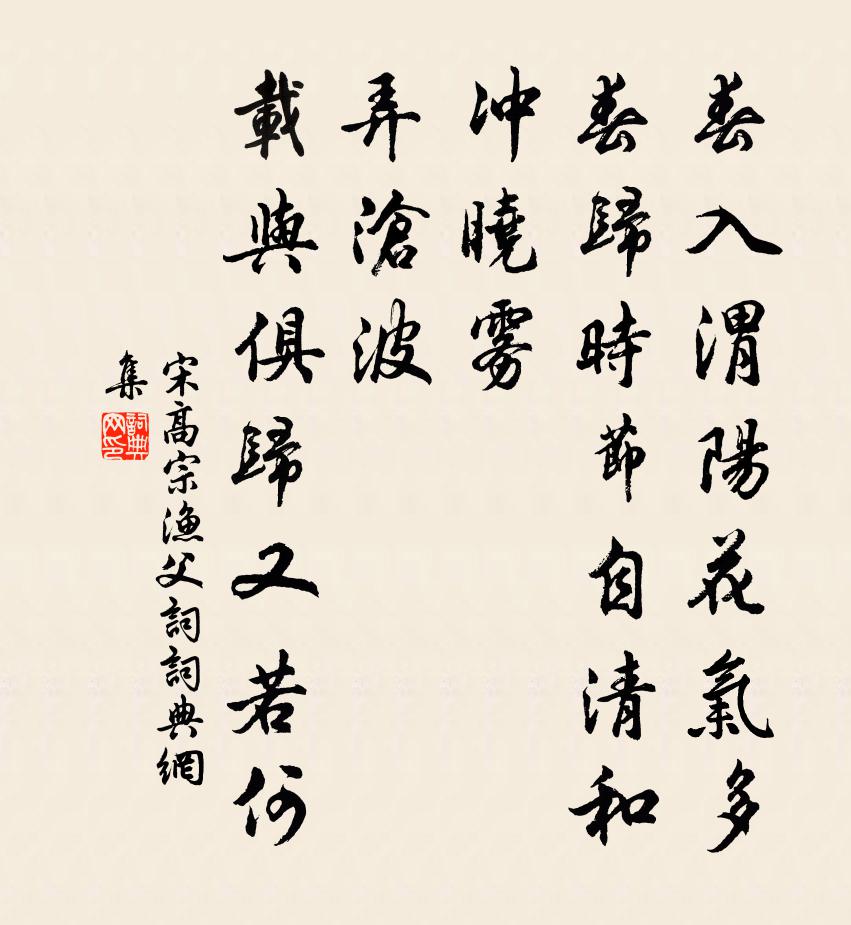 春入渭陽花氣多
春歸時節自清和
冲曉雾
弄滄波
載與俱歸又若何
宋高宗漁父詞詞典網
集
詞典
网印